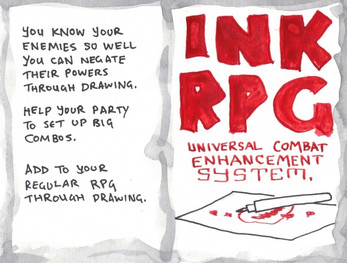 YOU KNOW YOUR
ENEMIES SO WELL
YOU CAN NEGATE
THEIR POWERS
THROUGH DRAWING.
HELP YOUR PARTY
TO SET UP BIG
COMBOS.
ADD TO YOUR
REGULAR RPG
THROUGH DRAWING.
INK
RPG
UNIVERSAL COMBAT
ENHANCEMENT
SYSTEM.